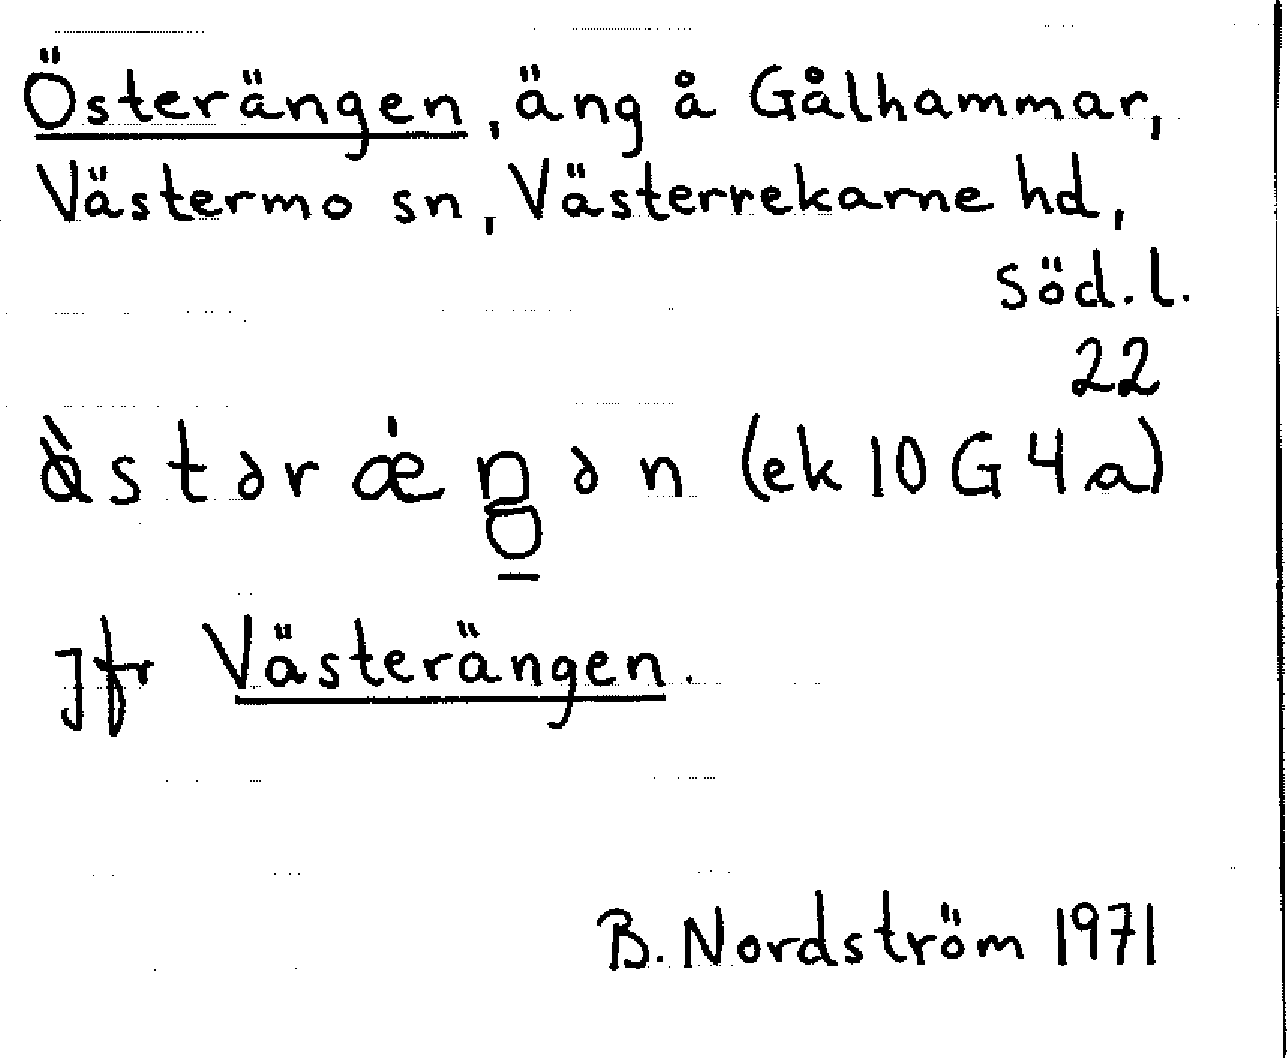 Österängen, äng å Gålhammar,
Västermo sn, Västerrekarne hd,
Söd.l.
22
(ek 10 G 4 a)
Jfr Västerängen.
B. Nordström 1971